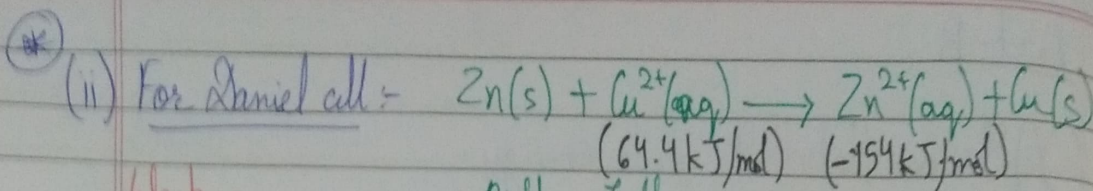 (ii) For Daniel cell :- Zn(s) + Cu²⁺(aq) ⟶ Zn²⁺(aq) + Cu(s)
(64.4 kJ/mol) (-154 kJ/mol)